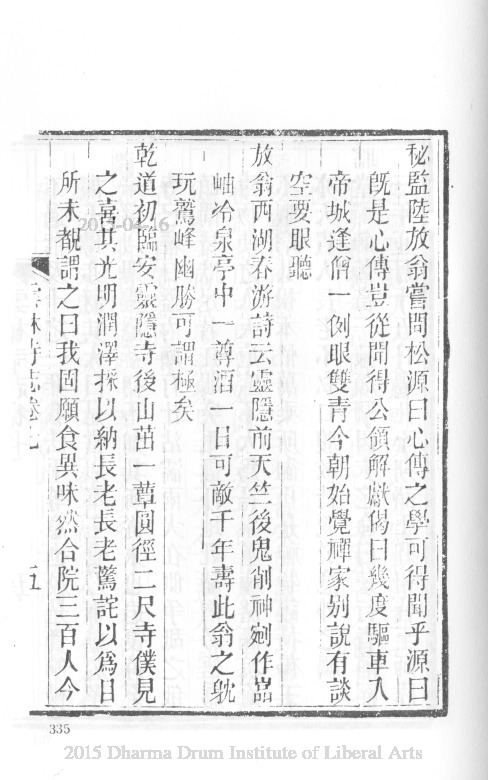 秘監陸放翁嘗問松源曰心傳之學可得聞乎源曰
旣是心傳豈從聞得公領解獻偈曰幾度驅車入
帝城逢僧一例眼雙青今朝始覺禪家别說有談
空要眼聽
放翁西湖春游詩云靈隱前天竺後鬼削神剜作嵓
岫冷泉亭中一尊酒一日可敵千年壽此翁之耽
玩鷲峰幽勝可謂極矣
乾道初臨安靈隱寺後山茁一蕈圓徑二尺寺僕見
之喜其光明潤澤採以納長老長老驚詫以爲目
所未覩謂之曰我固願食異味然合院三百人今
林寺志卷七
五
335
2015 Dharma Drum Institute of Liberal Arts